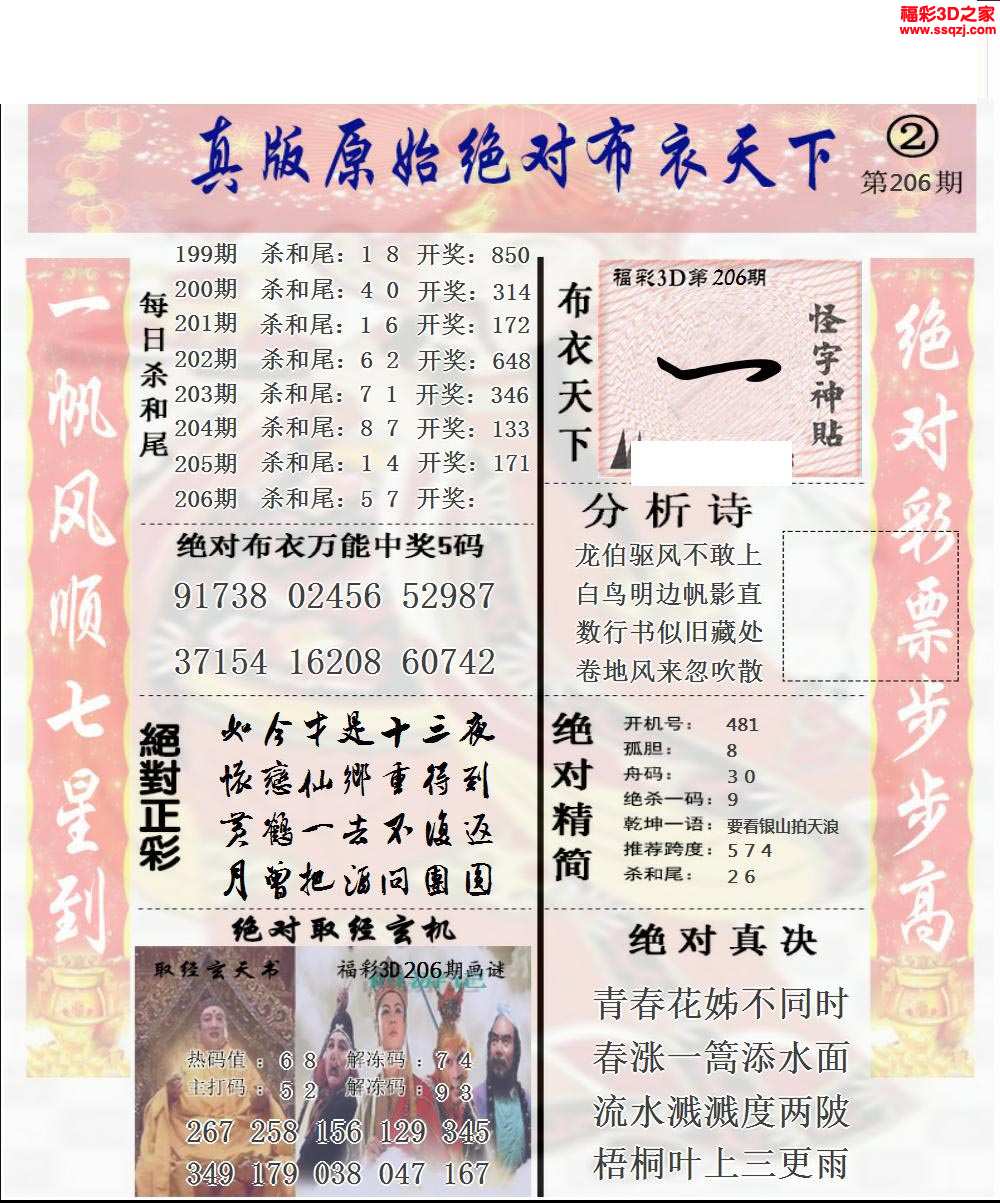 福彩3D之家
www.ssqzj.com
真版原始绝对布衣天下
②
第206期
一帆风顺七星到
每日杀和尾
199期 杀和尾：1 8 开奖：850
200期 杀和尾：4 0 开奖：314
201期 杀和尾：1 6 开奖：172
202期 杀和尾：6 2 开奖：648
203期 杀和尾：7 1 开奖：346
204期 杀和尾：8 7 开奖：133
205期 杀和尾：1 4 开奖：171
206期 杀和尾：5 7 开奖：
绝对布衣万能中奖5码
91738 02456 52987
37154 16208 60742
絕對正彩
如今才是十三夜
怅恋仙鄉重得到
黄鹤一去不復返
月曾把酒问團圆
绝对取经玄机
取经玄天书
福彩3D206期画谜
热码值：6 8 解冻码：7 4
主打码：5 2 解冻码：9 3
267 258 156 129 345
349 179 038 047 167
布衣天下
福彩3D第206期
一
怪字神貼
分析诗
龙伯驱风不敢上
白鸟明边帆影直
数行书似旧藏处
卷地风来忽吹散
绝对精简
开机号：481
孤胆：8
舟码：3 0
绝杀一码：9
乾坤一语：要看银山拍天浪
推荐跨度：5 7 4
杀和尾：2 6
绝对真决
青春花姊不同时
春涨一篙添水面
流水溅溅度两陂
梧桐叶上三更雨
绝对彩票步步高